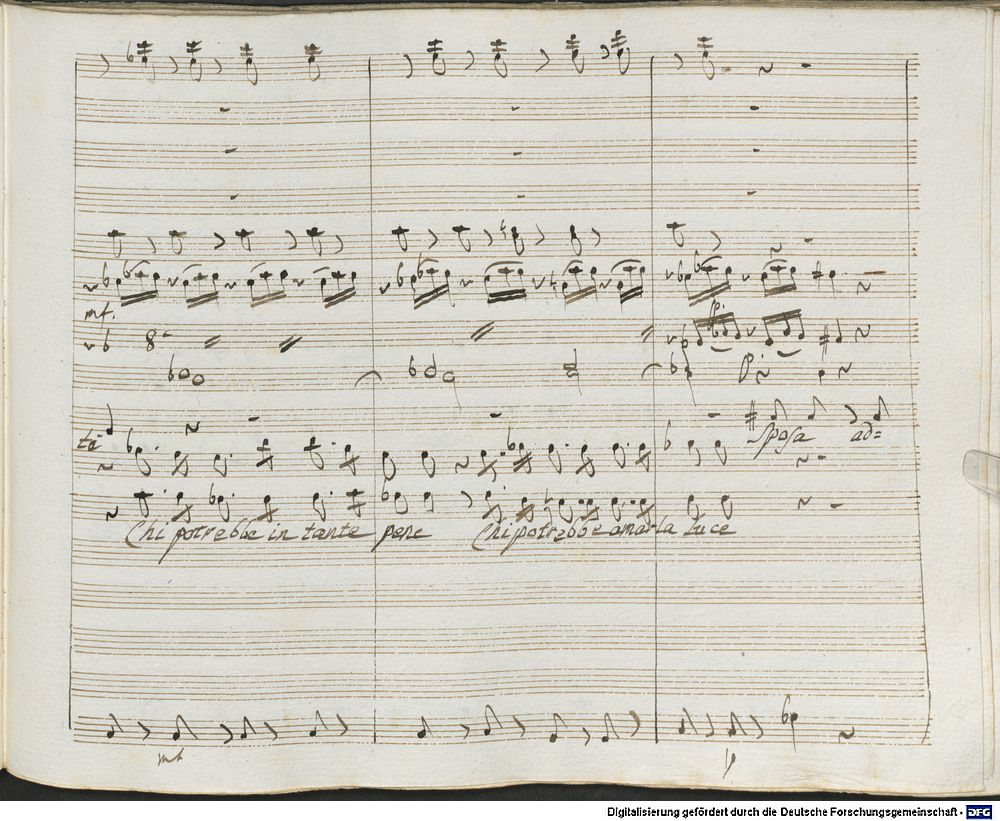 mf.
tà
Sposa ad=
Chi potrebbe in tante pene Chi potrebbe amar la luce
mf
p
Digitalisierung gefördert durch die Deutsche Forschungsgemeinschaft - DFG